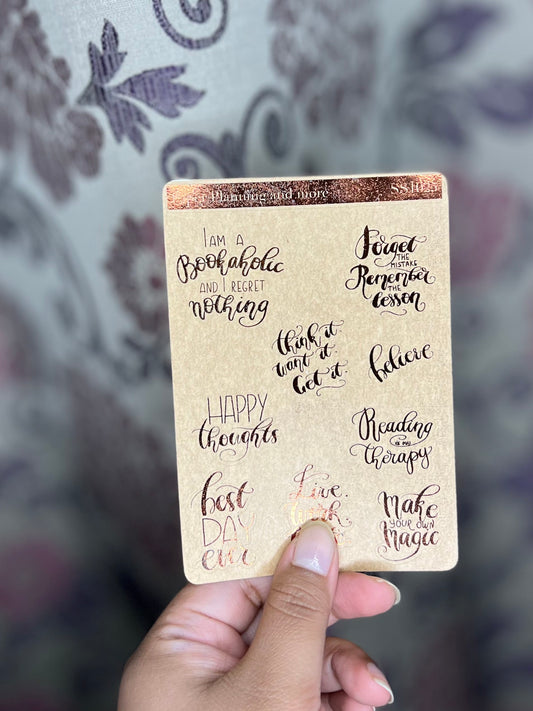 Planning and more
I AM A
Bookaholic
AND I REGRET
nothing
Forget
THE
MISTAKE
Remember
THE
lesson
think it.
want it.
Get it.
believe
HAPPY
thoughts
Reading
is my
therapy
best
DAY
ever
Live.
MAKE
YOUR OWN
Magic